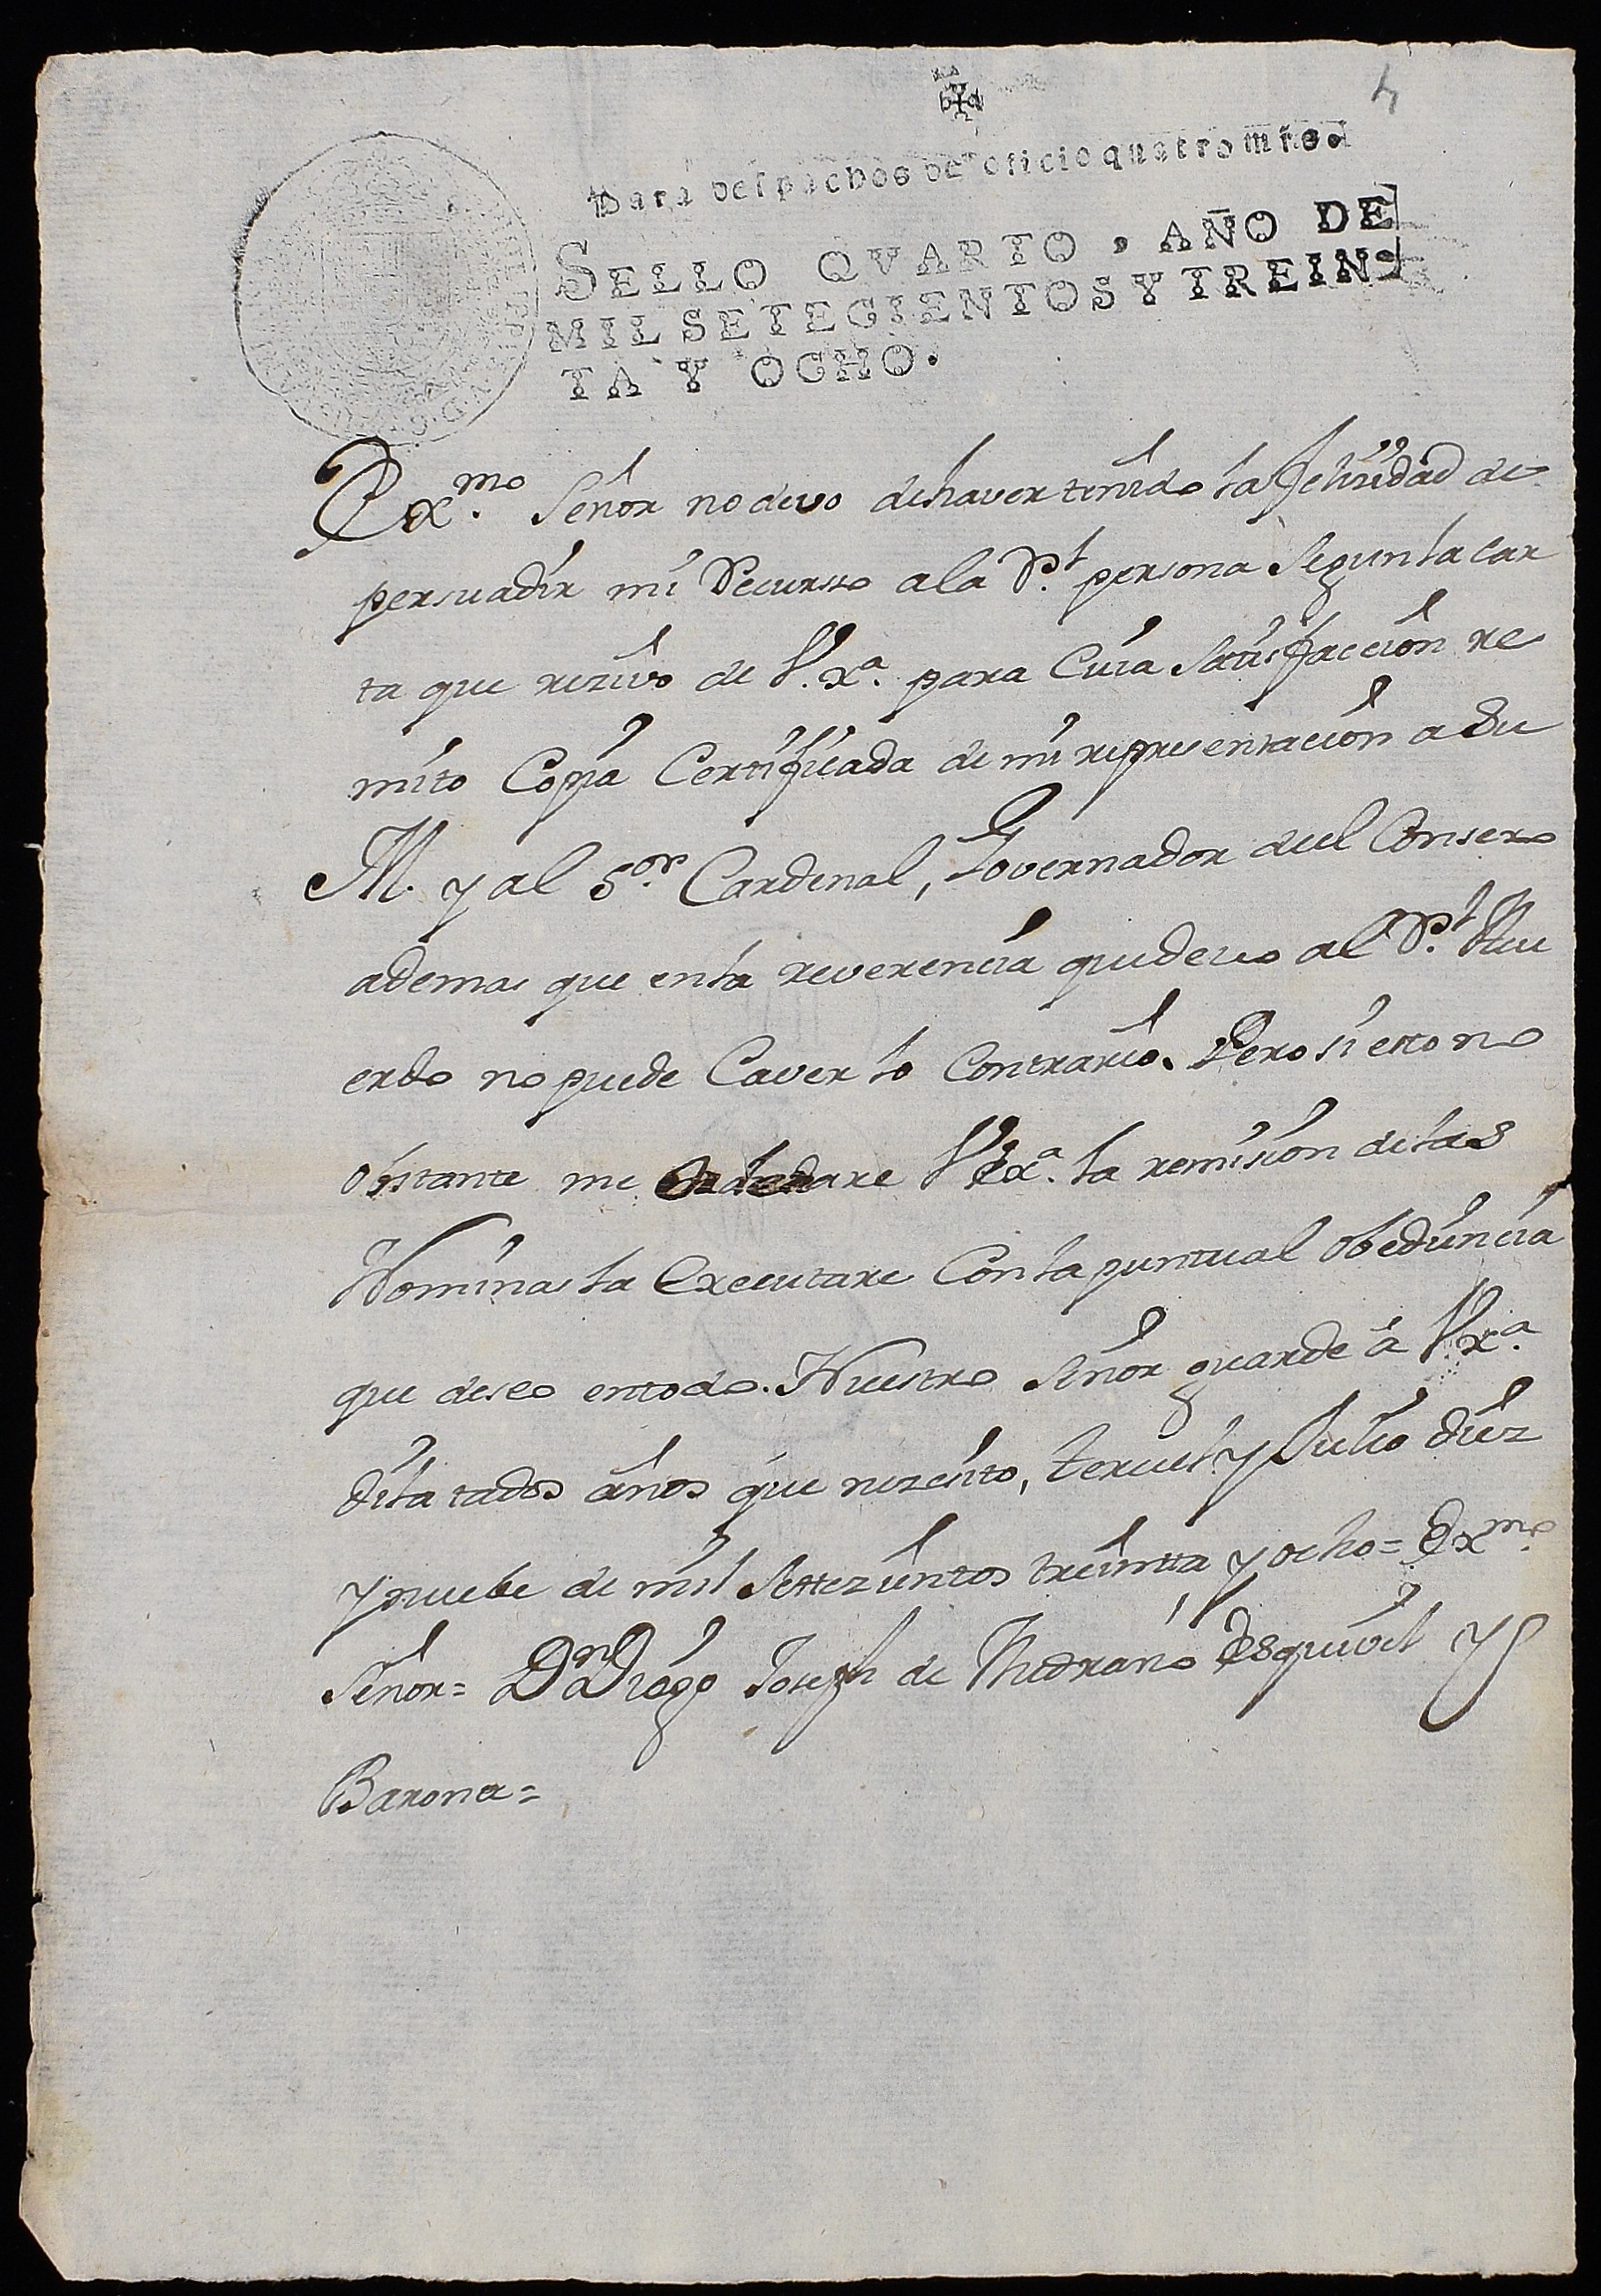 4
Para despachos de oficio quatro mrs.
SELLO QVARTO, AÑO DE
MIL SETECIENTOS Y TREIN-
TA Y OCHO.
Exmo. Señor no devo de haver tenido la felicidad de
persuadir mi Recurso a la Rl. persona segun la car
ta que rezivo de V. Xa. para Cuia Satisfaccion re
mito Copia Certificada de mi representacion a Su
M. y al Sor. Cardenal, Governador deel Consexo
ademas que en la reverencia que devo al Rl. Acu
erdo no puede Caver lo Contrario. Pero si esto no
obstante me Ordenare V Exa. la remision de las
Nominas la Executare Con la puntual obediencia
que deseo en todo. Nuestro Señor guarde á V Xa.
dilatados años que nezesito, teruel y Julio diez
y nuebe de mil settezientos treintta y ocho = Exmo.
Señor = Dn Diego Joseph de Medrano Esquivel y
Barona =